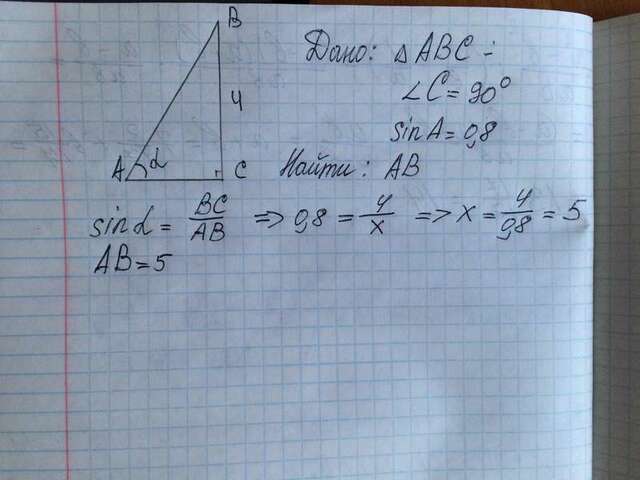 B
Дано: △ABC –
4
∠C = 90°
sin A = 0,8
A α C
Найти: AB
sin α = BC/AB => 0,8 = 4/x => x = 4/0,8 = 5
AB = 5